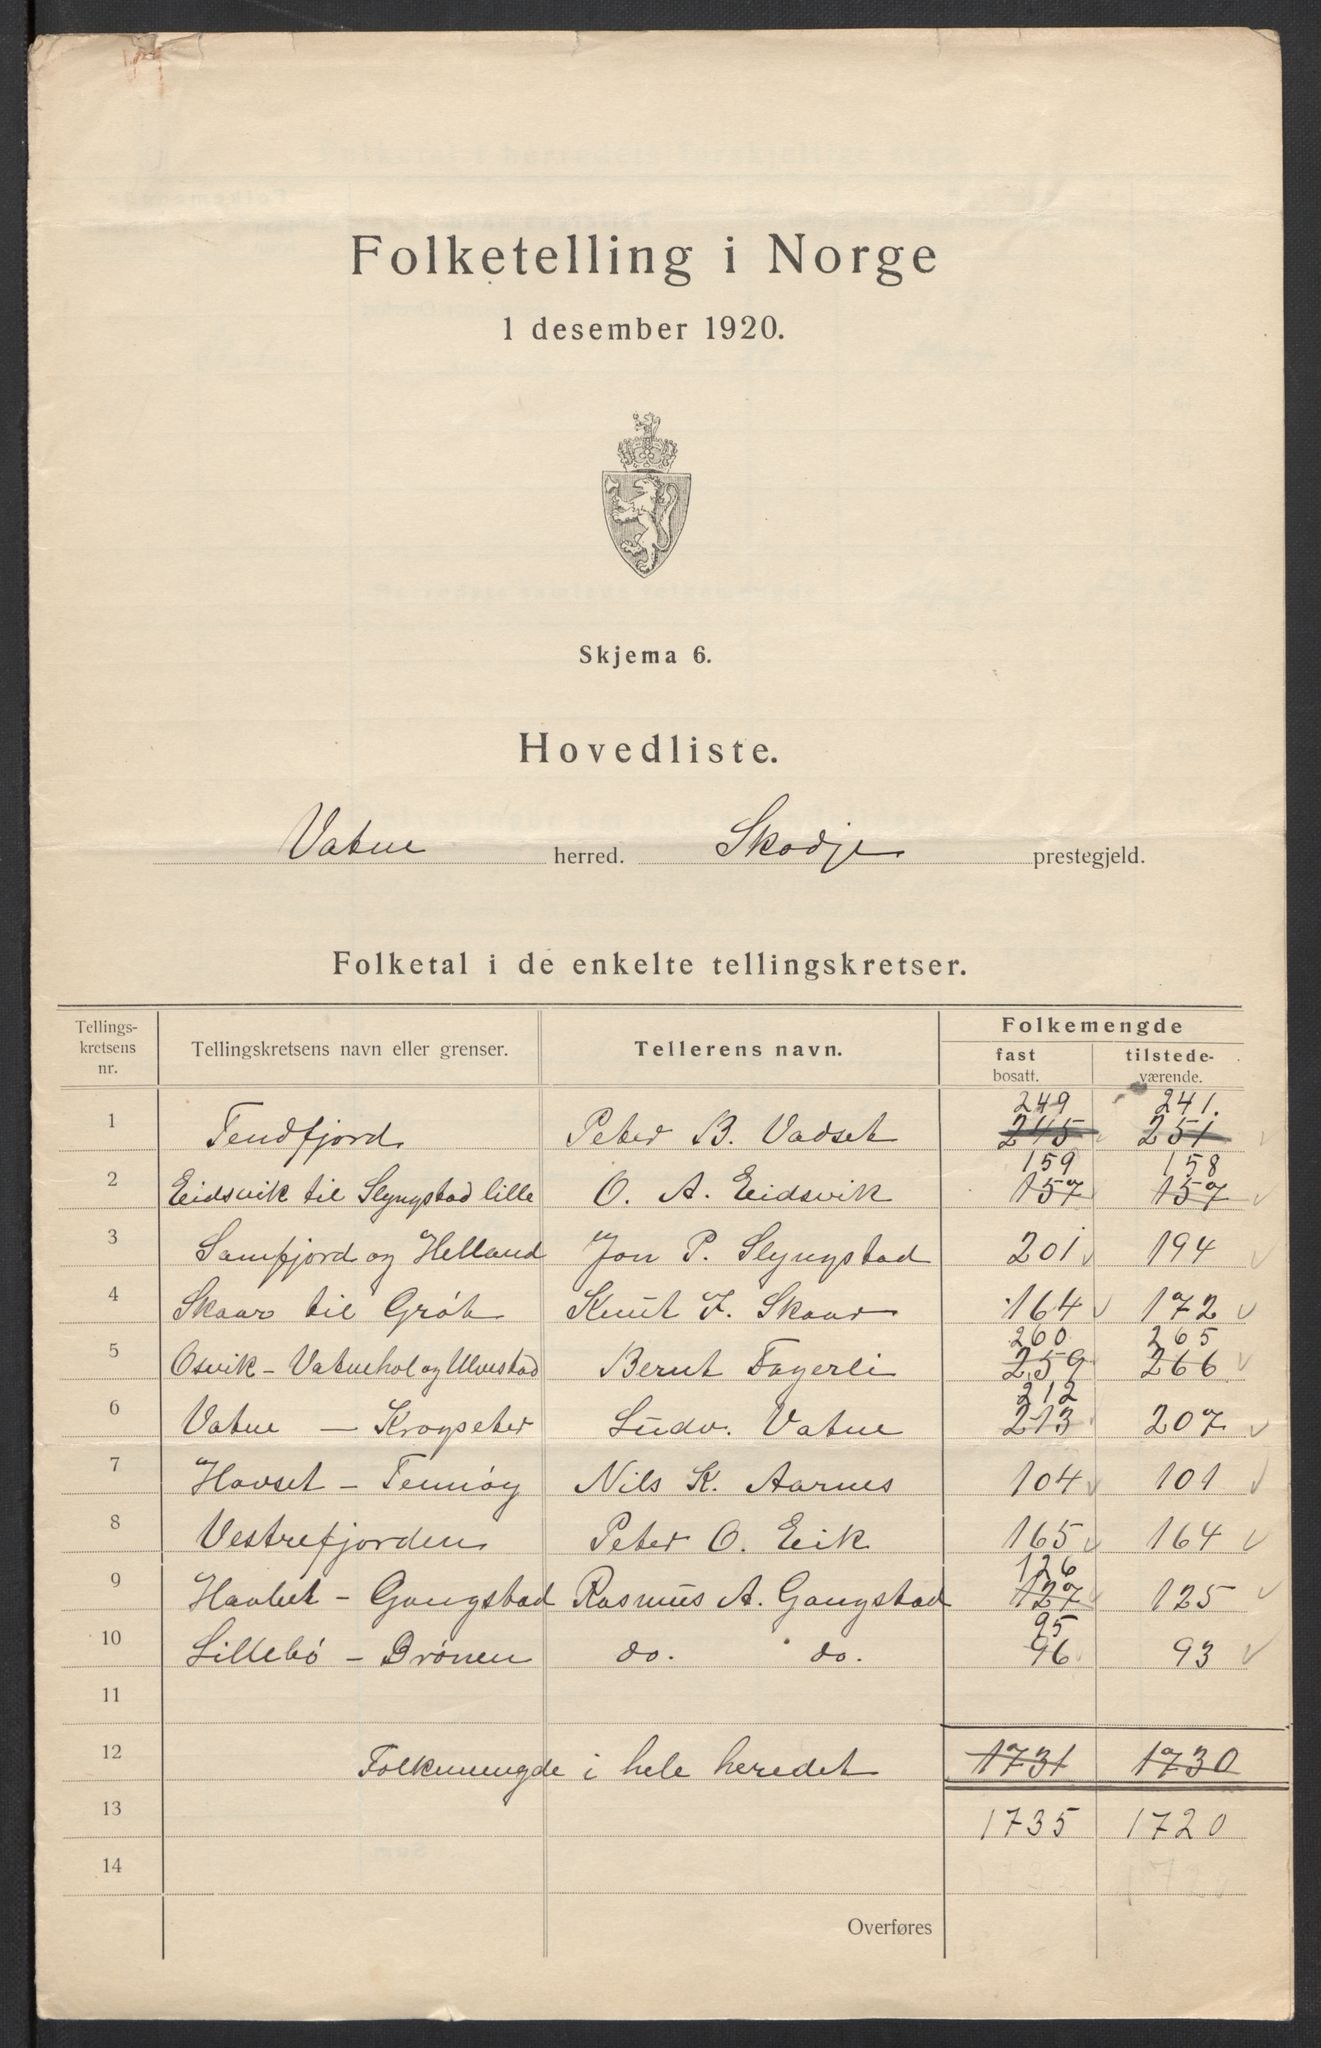 Folketelling i Norge
1 desember 1920.
Skjema 6.
Hovedliste.
Vatne herred. Skodje prestegjeld.
Folketal i de enkelte tellingskretser.
Tellings-
kretsens
nr.
Tellingskretsens navn eller grenser.
Tellerens navn.
Folkemengde
fast
bosatt.
tilstede-
værende.
249 241.
1 Tendfjord Peter B. Vadset 245 251
159 158
2 Eidsvik til Slyngstad lille O. A. Eidsvik 157 157
3 Samfjord og Helland Jon P. Slyngstad 201 194
4 Skaar til Gröt Knut J. Skaar 164 172
260 265
5 Osvik - Vatnehol og Ulvestad Bernt Fagerli 259 266
212
6 Vatne - Krogseter Ludv. Vatne 213 207
7 Havset - Tennöy Nils K. Aarnes 104 101
8 Vestrefjorden Peter O. Eik 165 164
126
9 - Gangstad Rasmus A. Gangstad 127 125
95
10 Lillebö - Brönen do. do. 96 93
11
12 Folkemengde i hele heredet 1731 1730
13 1735 1720
14
Overføres